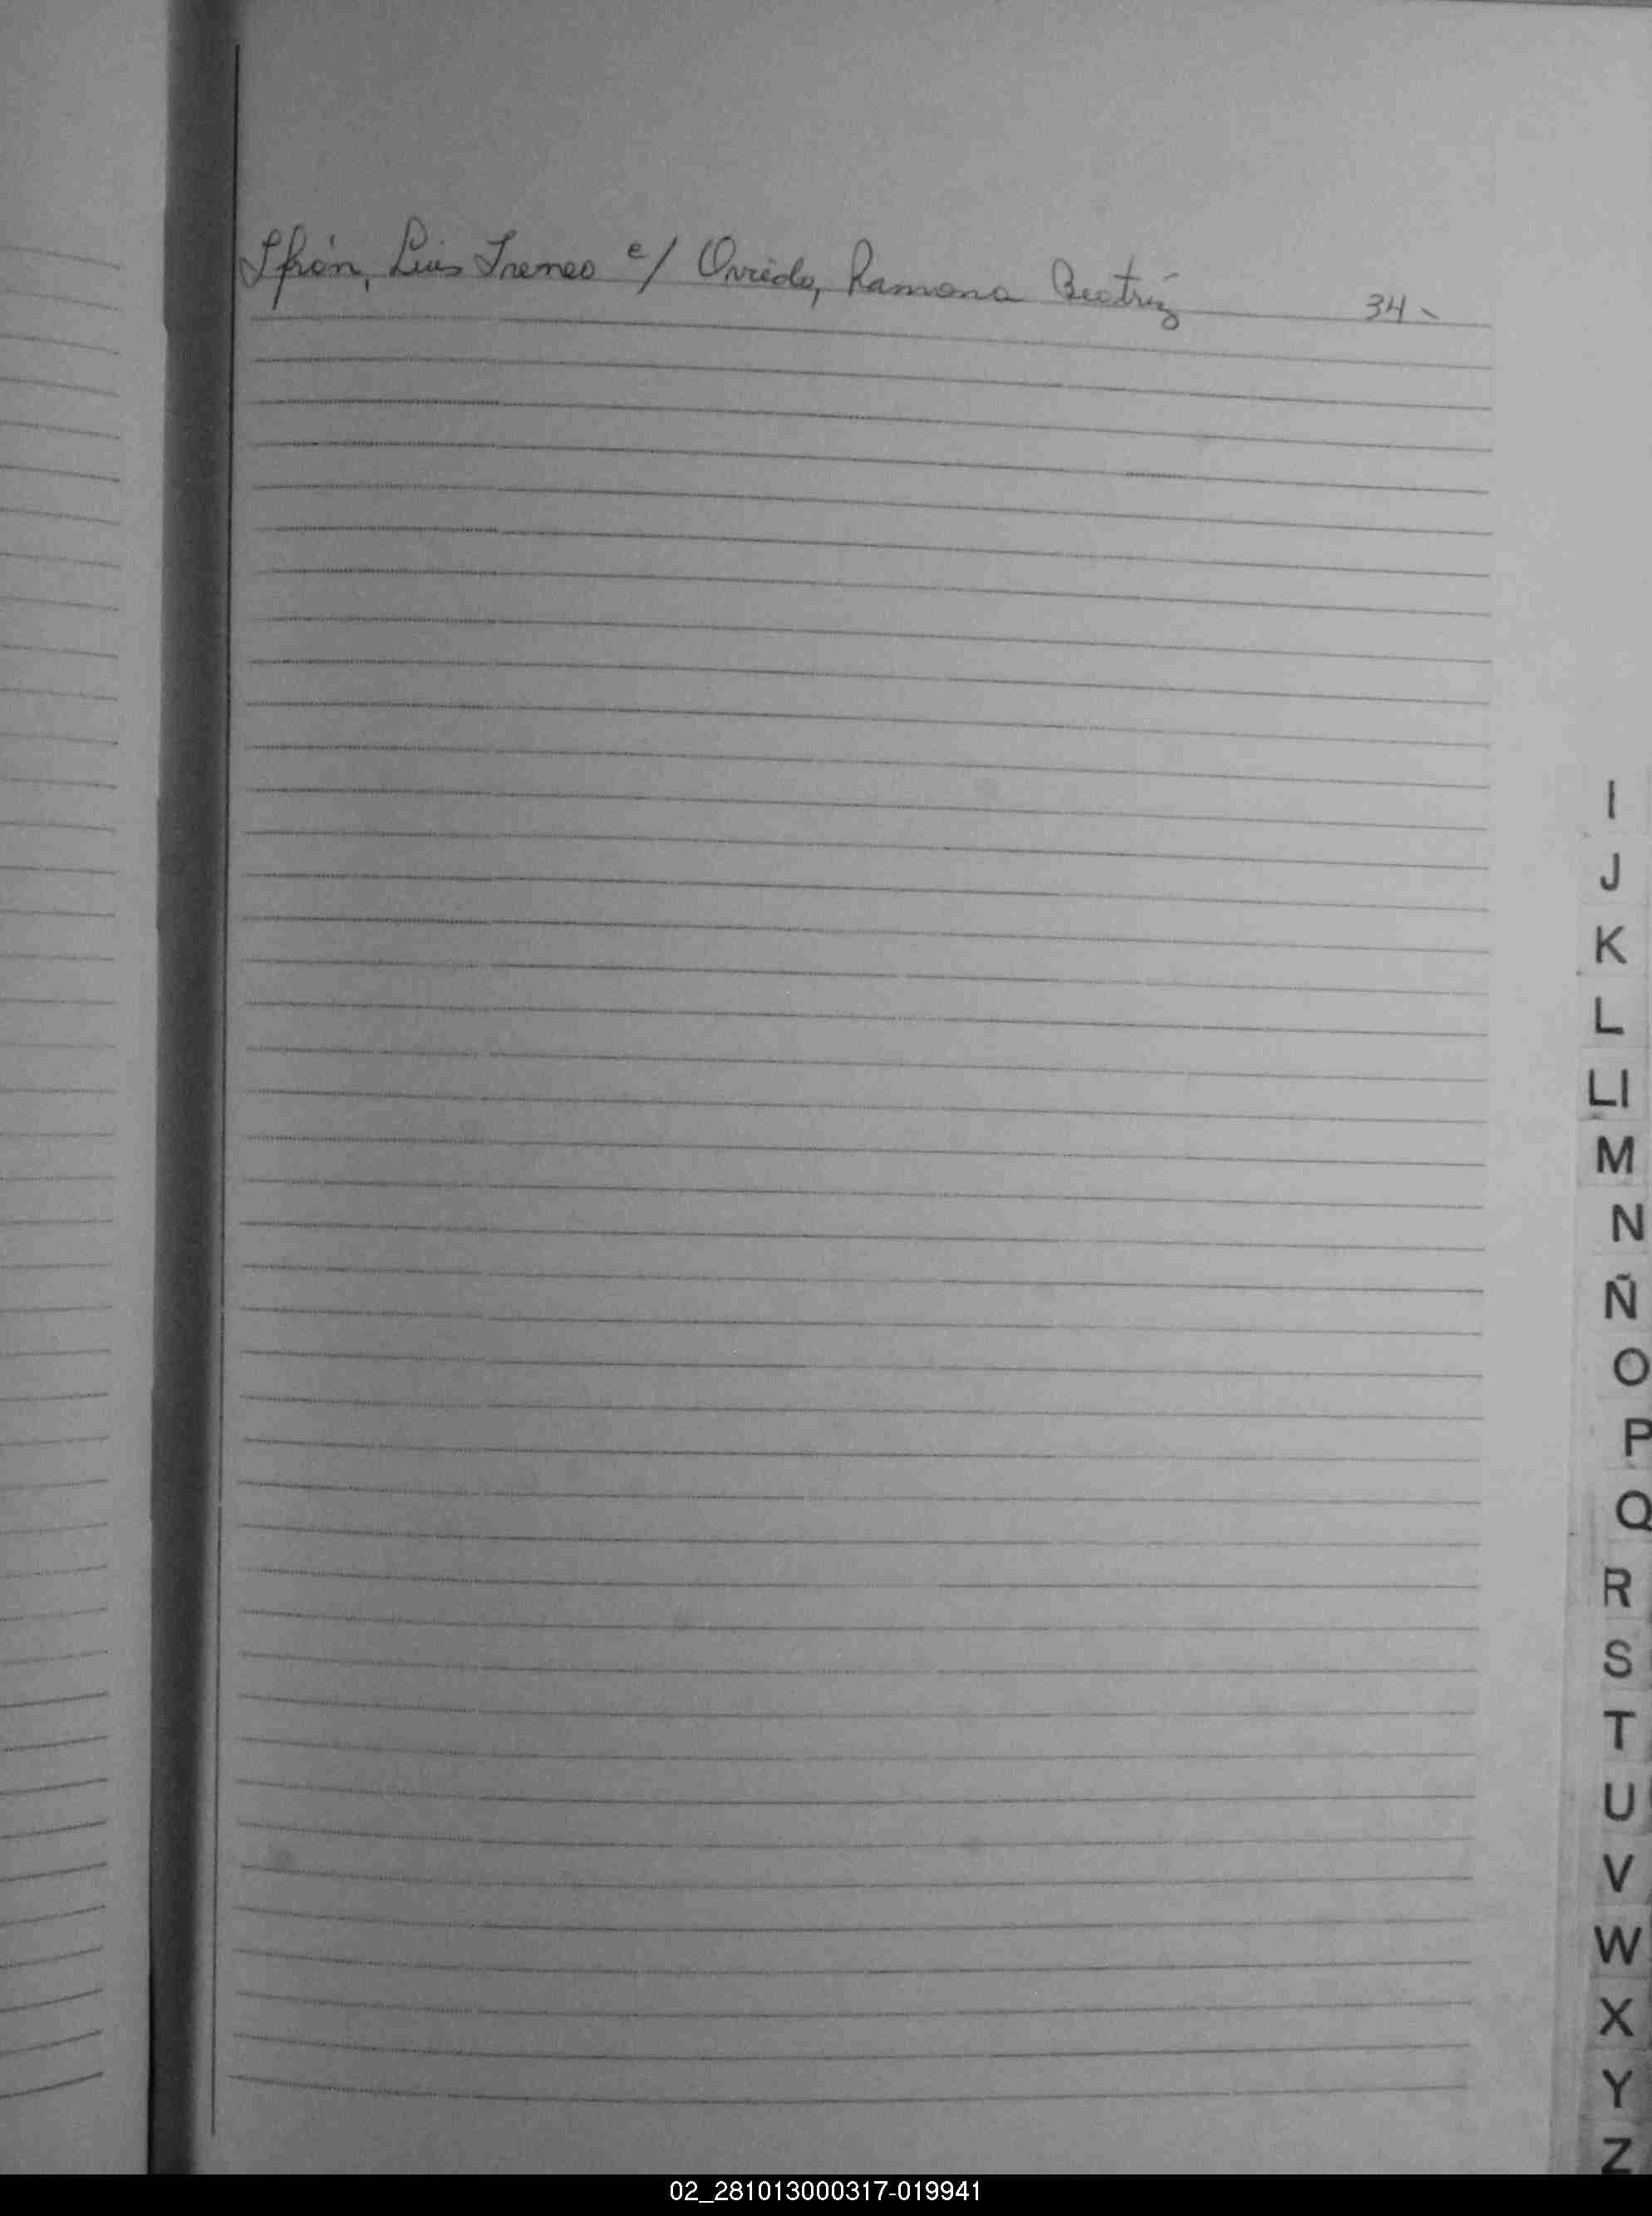 Ifrán, Luis Ireneo c/ Oviedo, Ramona Beatríz 34-
I
J
K
L
Ll
M
N
Ñ
O
P
Q
R
S
T
U
V
W
X
Y
Z
02_281013000317-019941